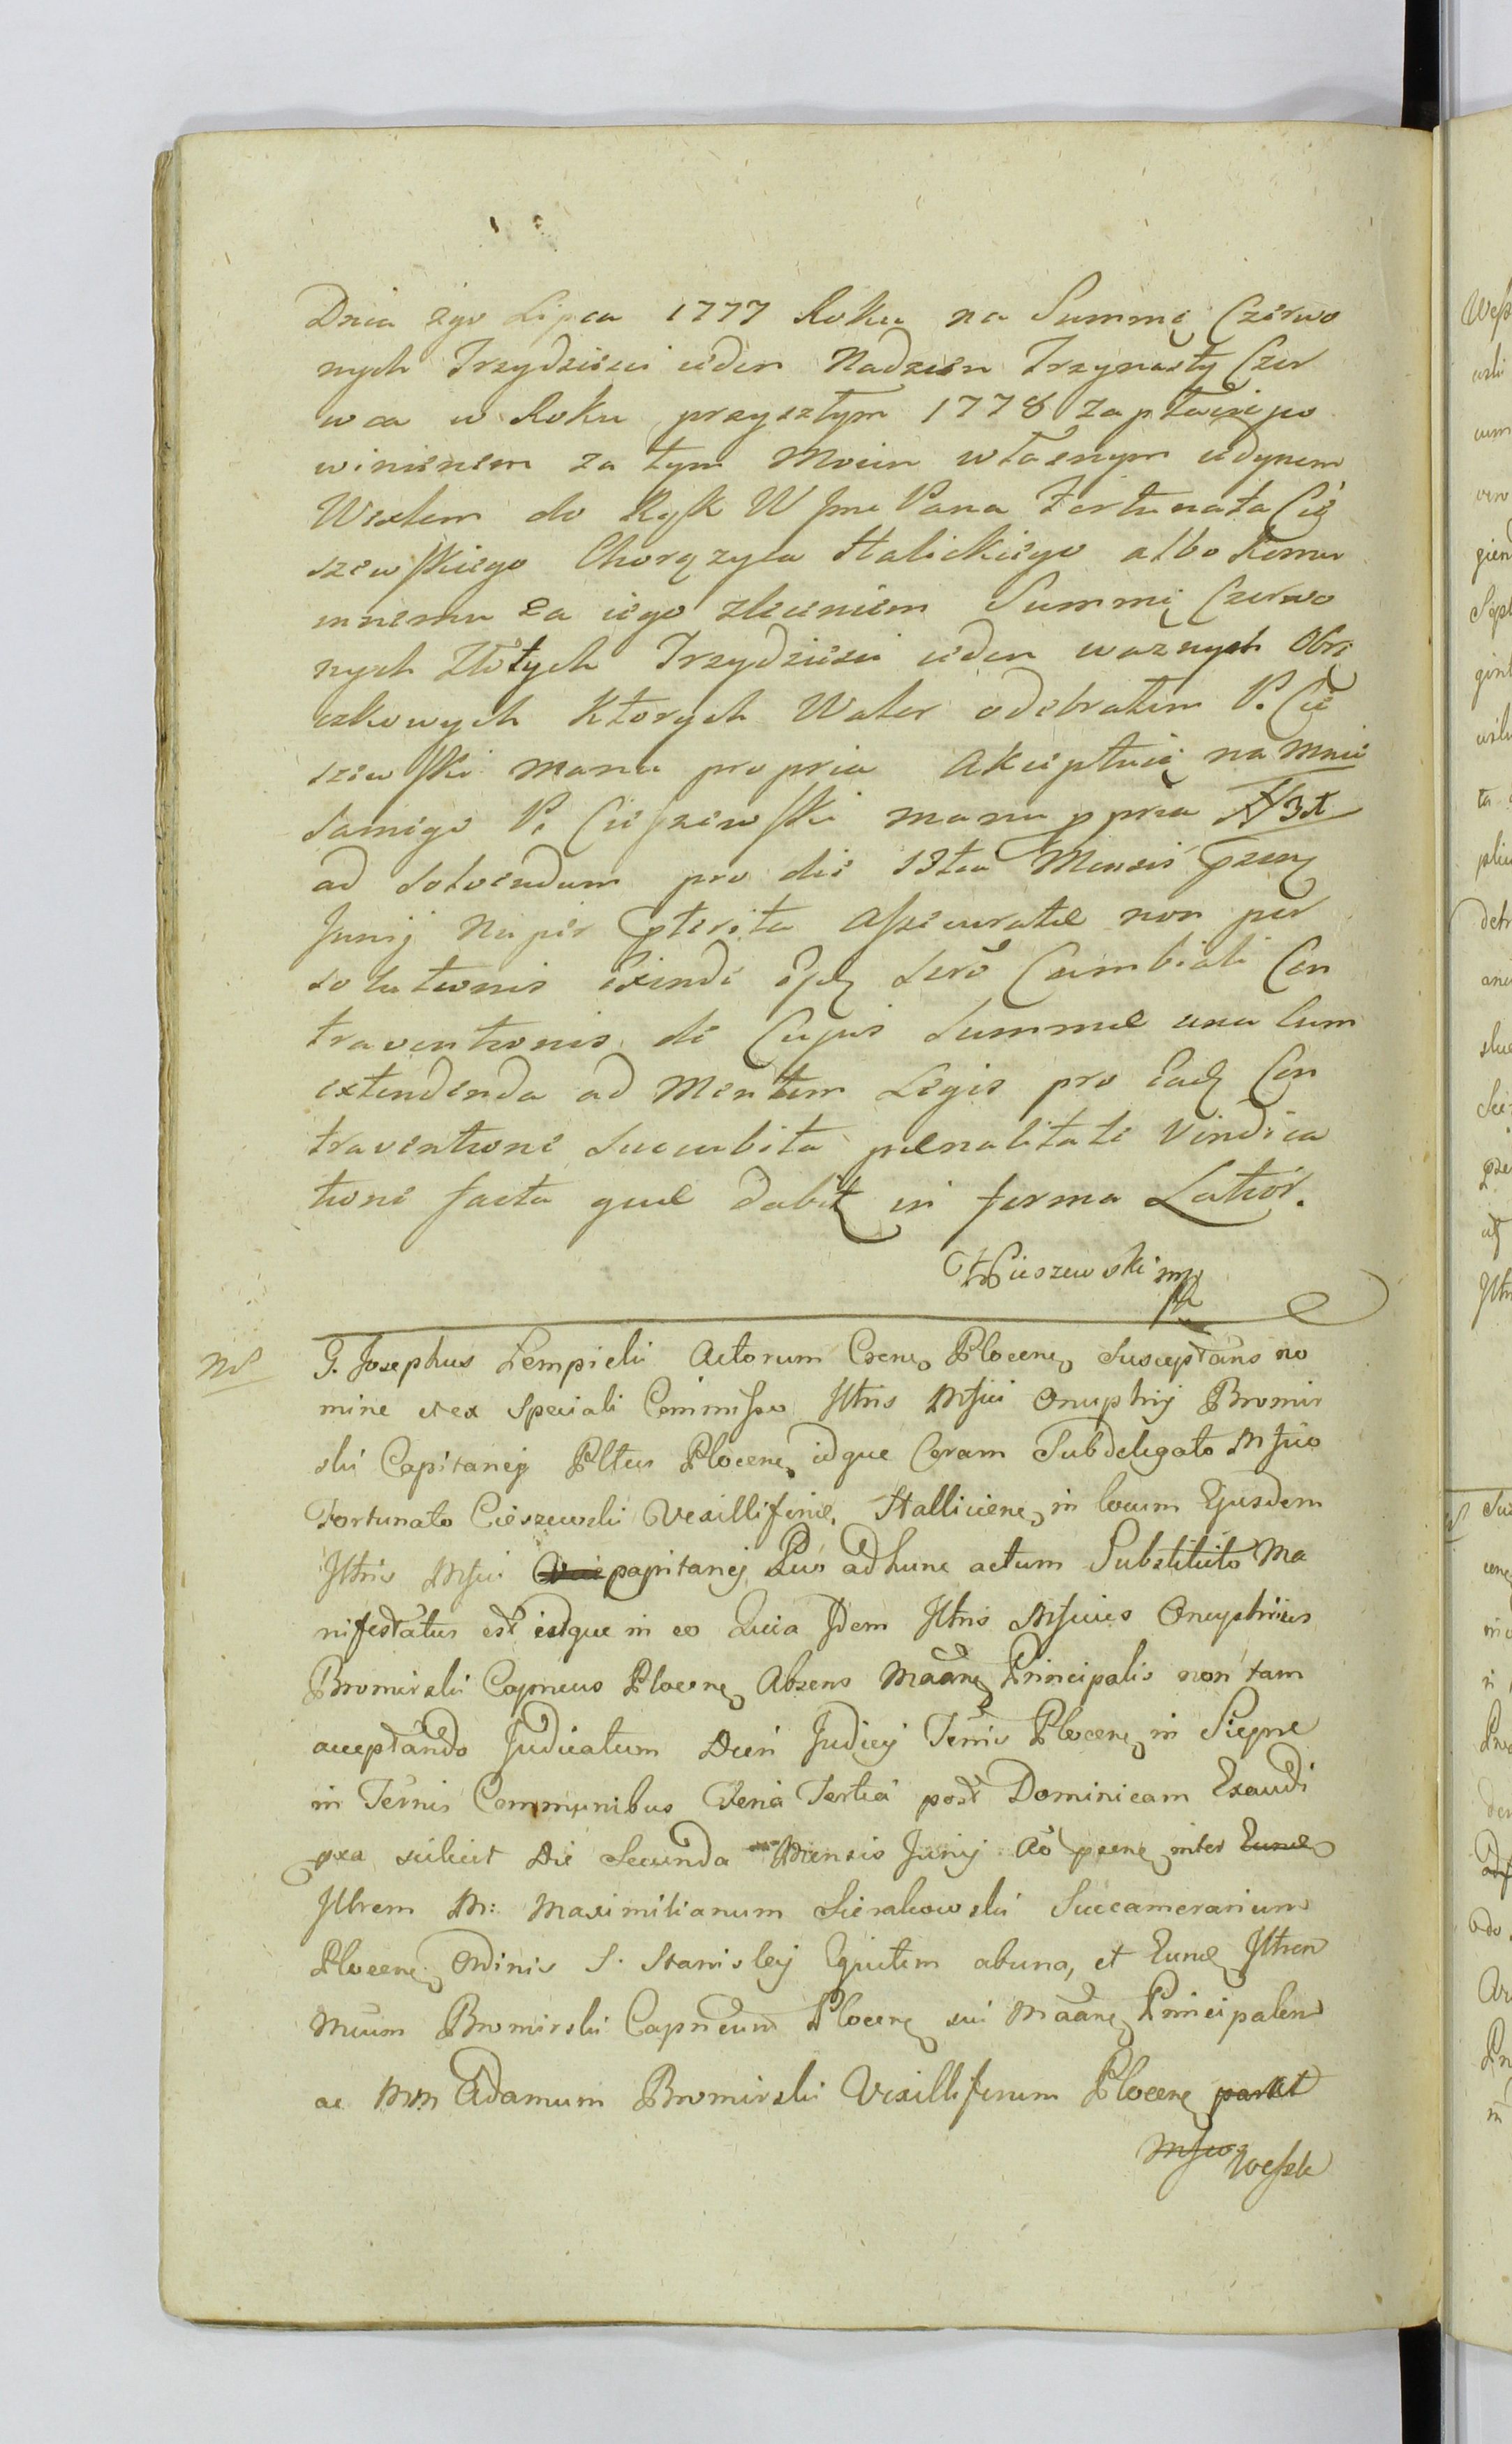 Dnia 2go Lipca 1777 Roku na Summę Czerwo
nych Trzydzieści ieden Nadzien Trzynasty Czer
wca w Roku przyszłym 1778 Zapłacić po
winienem za tym Moim własnym iedynem
Wexlem do Rąk W Jmci Pana Fortunata Cie
szewskiego Chorązyca Halickiego albo komu
innemu za iego zleceniem Summę Czerwo
nych Złotych Trzydzieści ieden ważnych Obrą
czkowych których Walor odebrałem P. Cie
szewski manu propria Akceptuię na mnie
Samego P. Cieszewski manu ppria
ad Solvendum pro die 13tia Mensis
Junij Nuper pterita Assecuratæ non per
solutionis Exinde Sero Cambiali Con
traventionis de Cujus Summæ una cum
extendenda ad Mentem Legis pro Eadq Con
traventione Succubita pænalitate Vindica
tione facta quæ dabit in forma Latior.
Cieszewski mp
G. Josephus Lempicki Actorum Crene Plocene Susceptans no
mine et ex Speciali Commisso Illtris Mfici Onuphrij Bromir
ski Capitanej Pltus Plocene idque Coram Subdelegato Mfico
Fortunato Cieszewski Vexilliferide Halliciene in locum Ejusdem
Illtris Mfici Capitanej Plus ad hunc actum Substituto Ma
nifestatus est idque in eo Quia Idem Illtris Mficus Onuphrius
Bromirski Capneus Plocene Absens Maane Principalis non tam
acceptando Judicatum Dcen Judicij Terris Plocene in Sierpne
in Ternis Communibus Feria Tertia post Dominicam Exaudi
pxa scilicet Die Secunda Mensis Junij Ao psene inter Eunde
Illtrem M: Maximilianum Sierakowski Succamerarium
Plocene Ordinis S. Stanislej Equitem ab una, et Eunde Illtren
Mcum Bromirski Capneum Plocene sui Maane Principalem
ac Mm Adamum Bromirski Vexilliferum Plocene